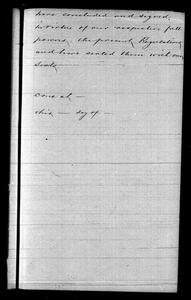 have concluded and signed
in virtue of our respective full
powers, the present Regulations
and have sealed them with our
Seals.
Done at —
this — day of —